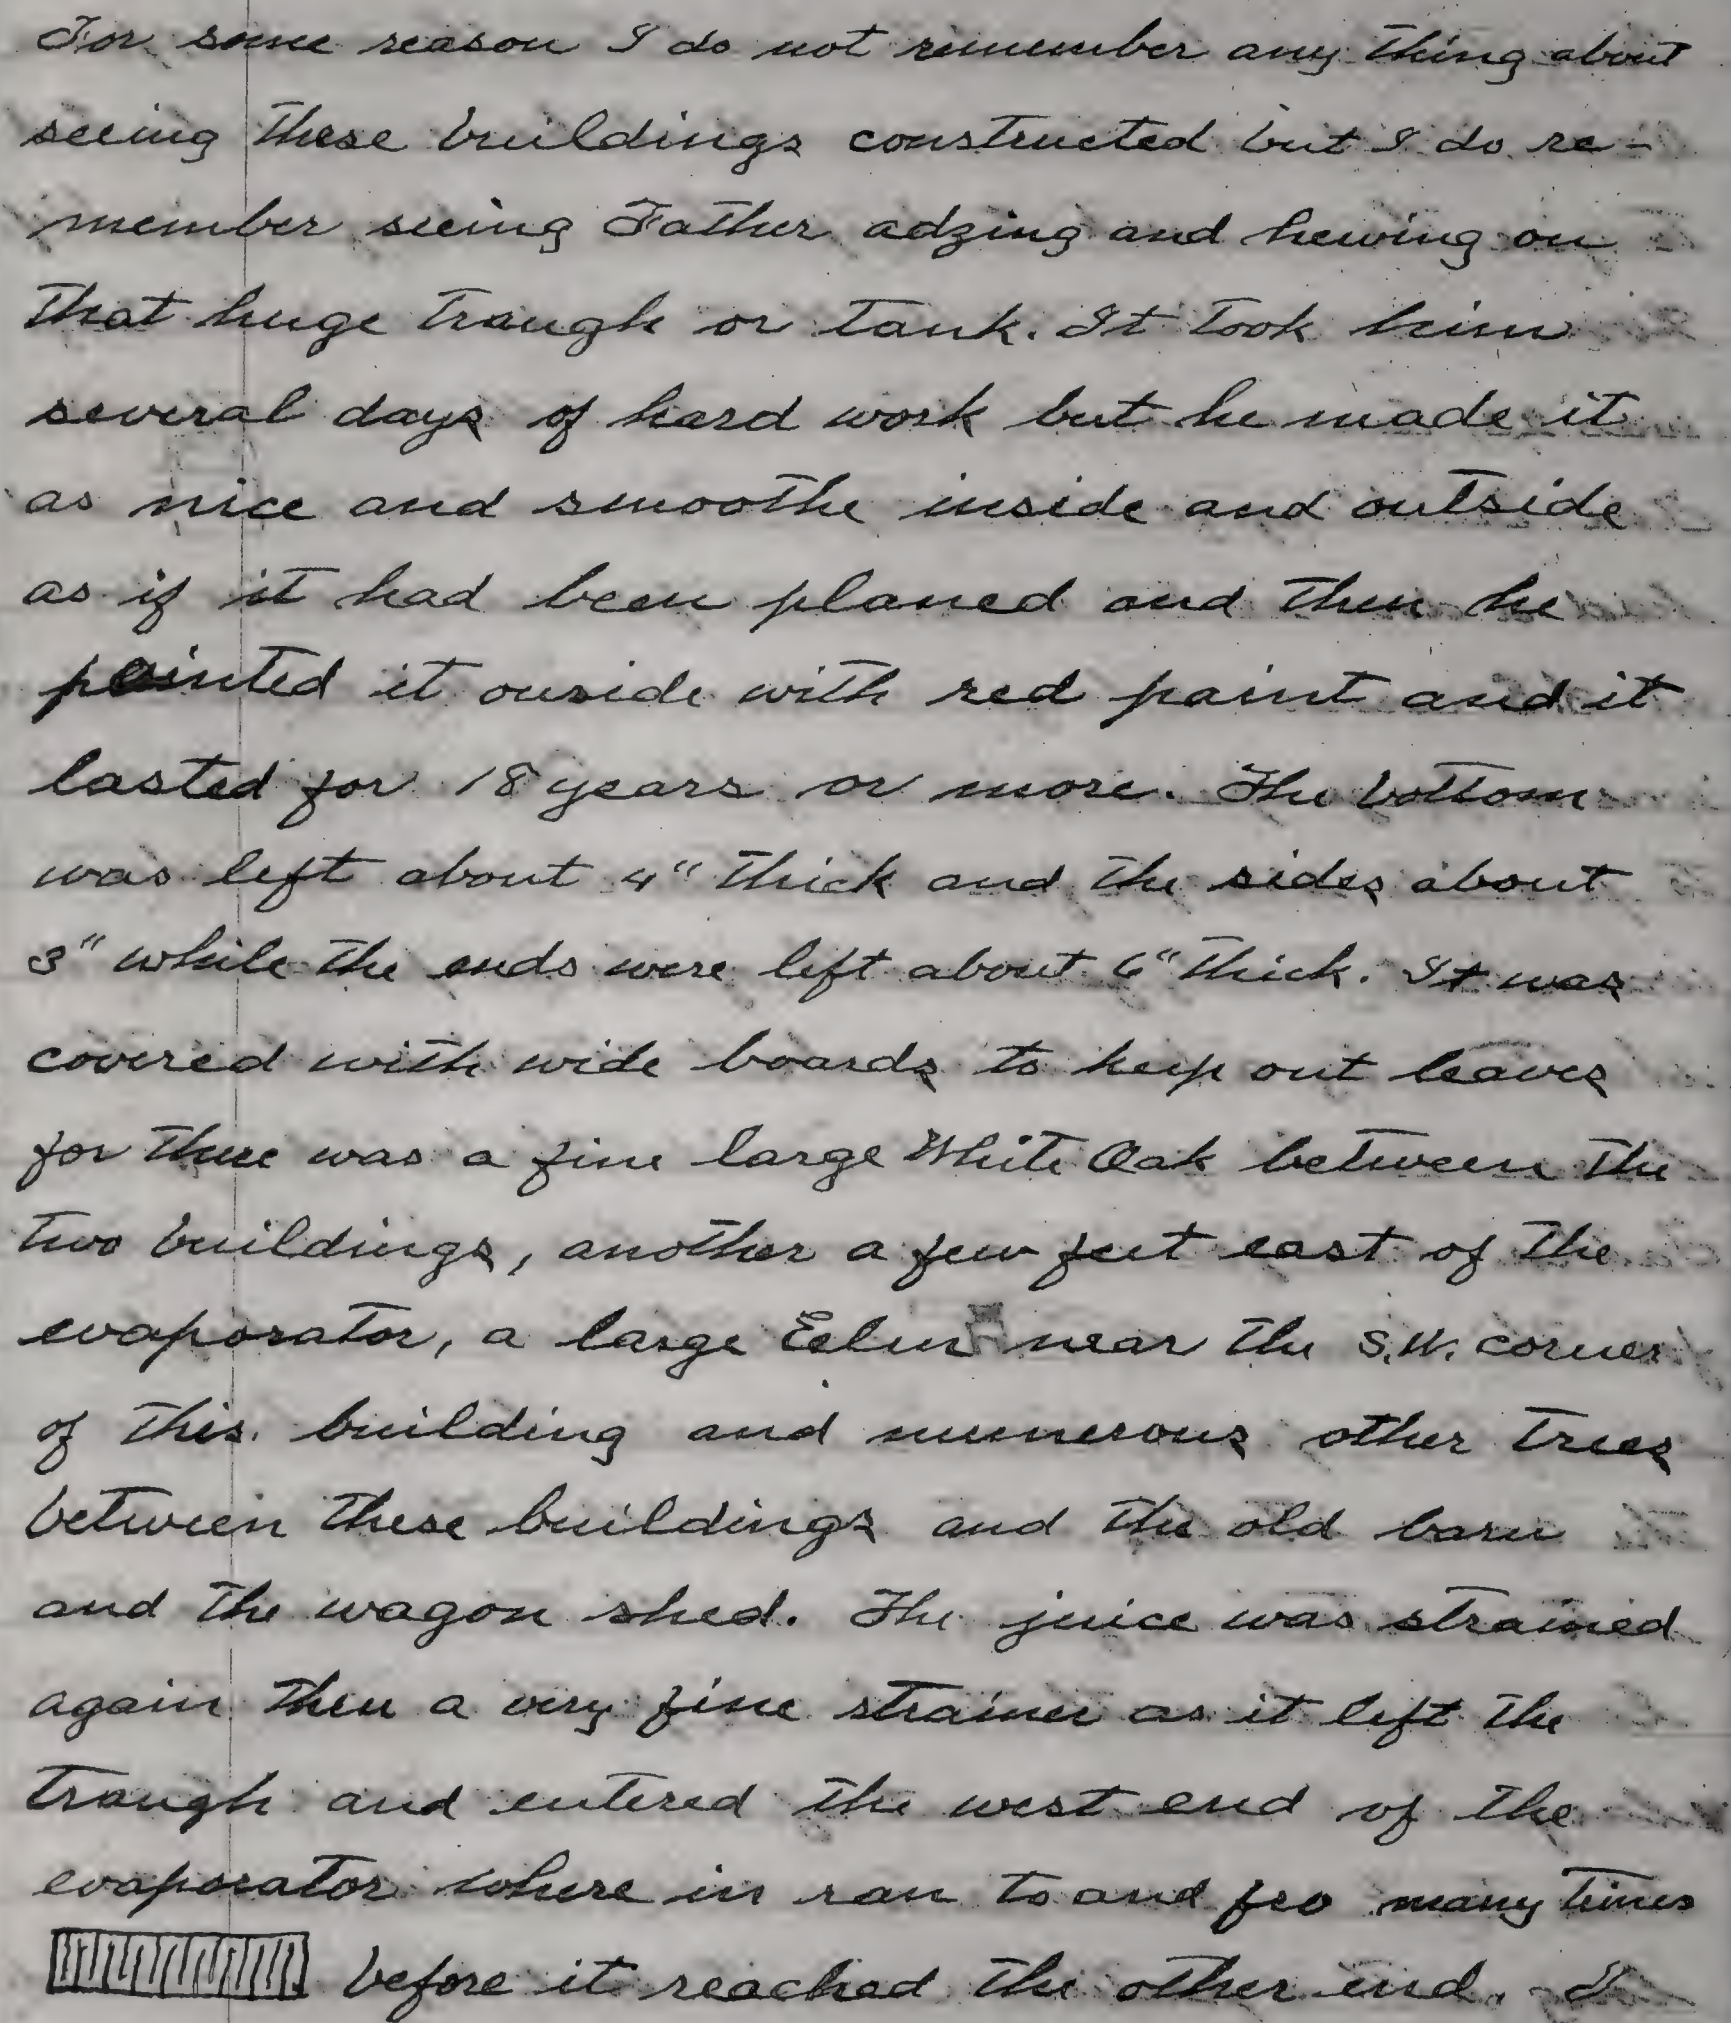 For some reason I do not remember any thing about
seeing these buildings constructed but I do re-
member seeing Father adzing and hewing on
that huge trough or tank. It took him
several days of hard work but he made it
as nice and smoothe inside and outside
as if it had been planed and then he
painted it ouside with red paint and it
lasted for 18 years or more. The bottom
was left about 4" thick and the sides about
3" while the ends were left about 6" thick. It was
covered with wide boards to keep out leaves
for there was a fine large White Oak between the
two buildings, another a few feet east of the
evaporator, a large Eelm near the S.W. corner
of this building and numerous other trees
between these buildings and the old barn
and the wagon shed. The juice was strained
again then a very fine strainer as it left the
trough and entered the west end of the
evaporator where in ran to and fro many times
before it reached the other end. I